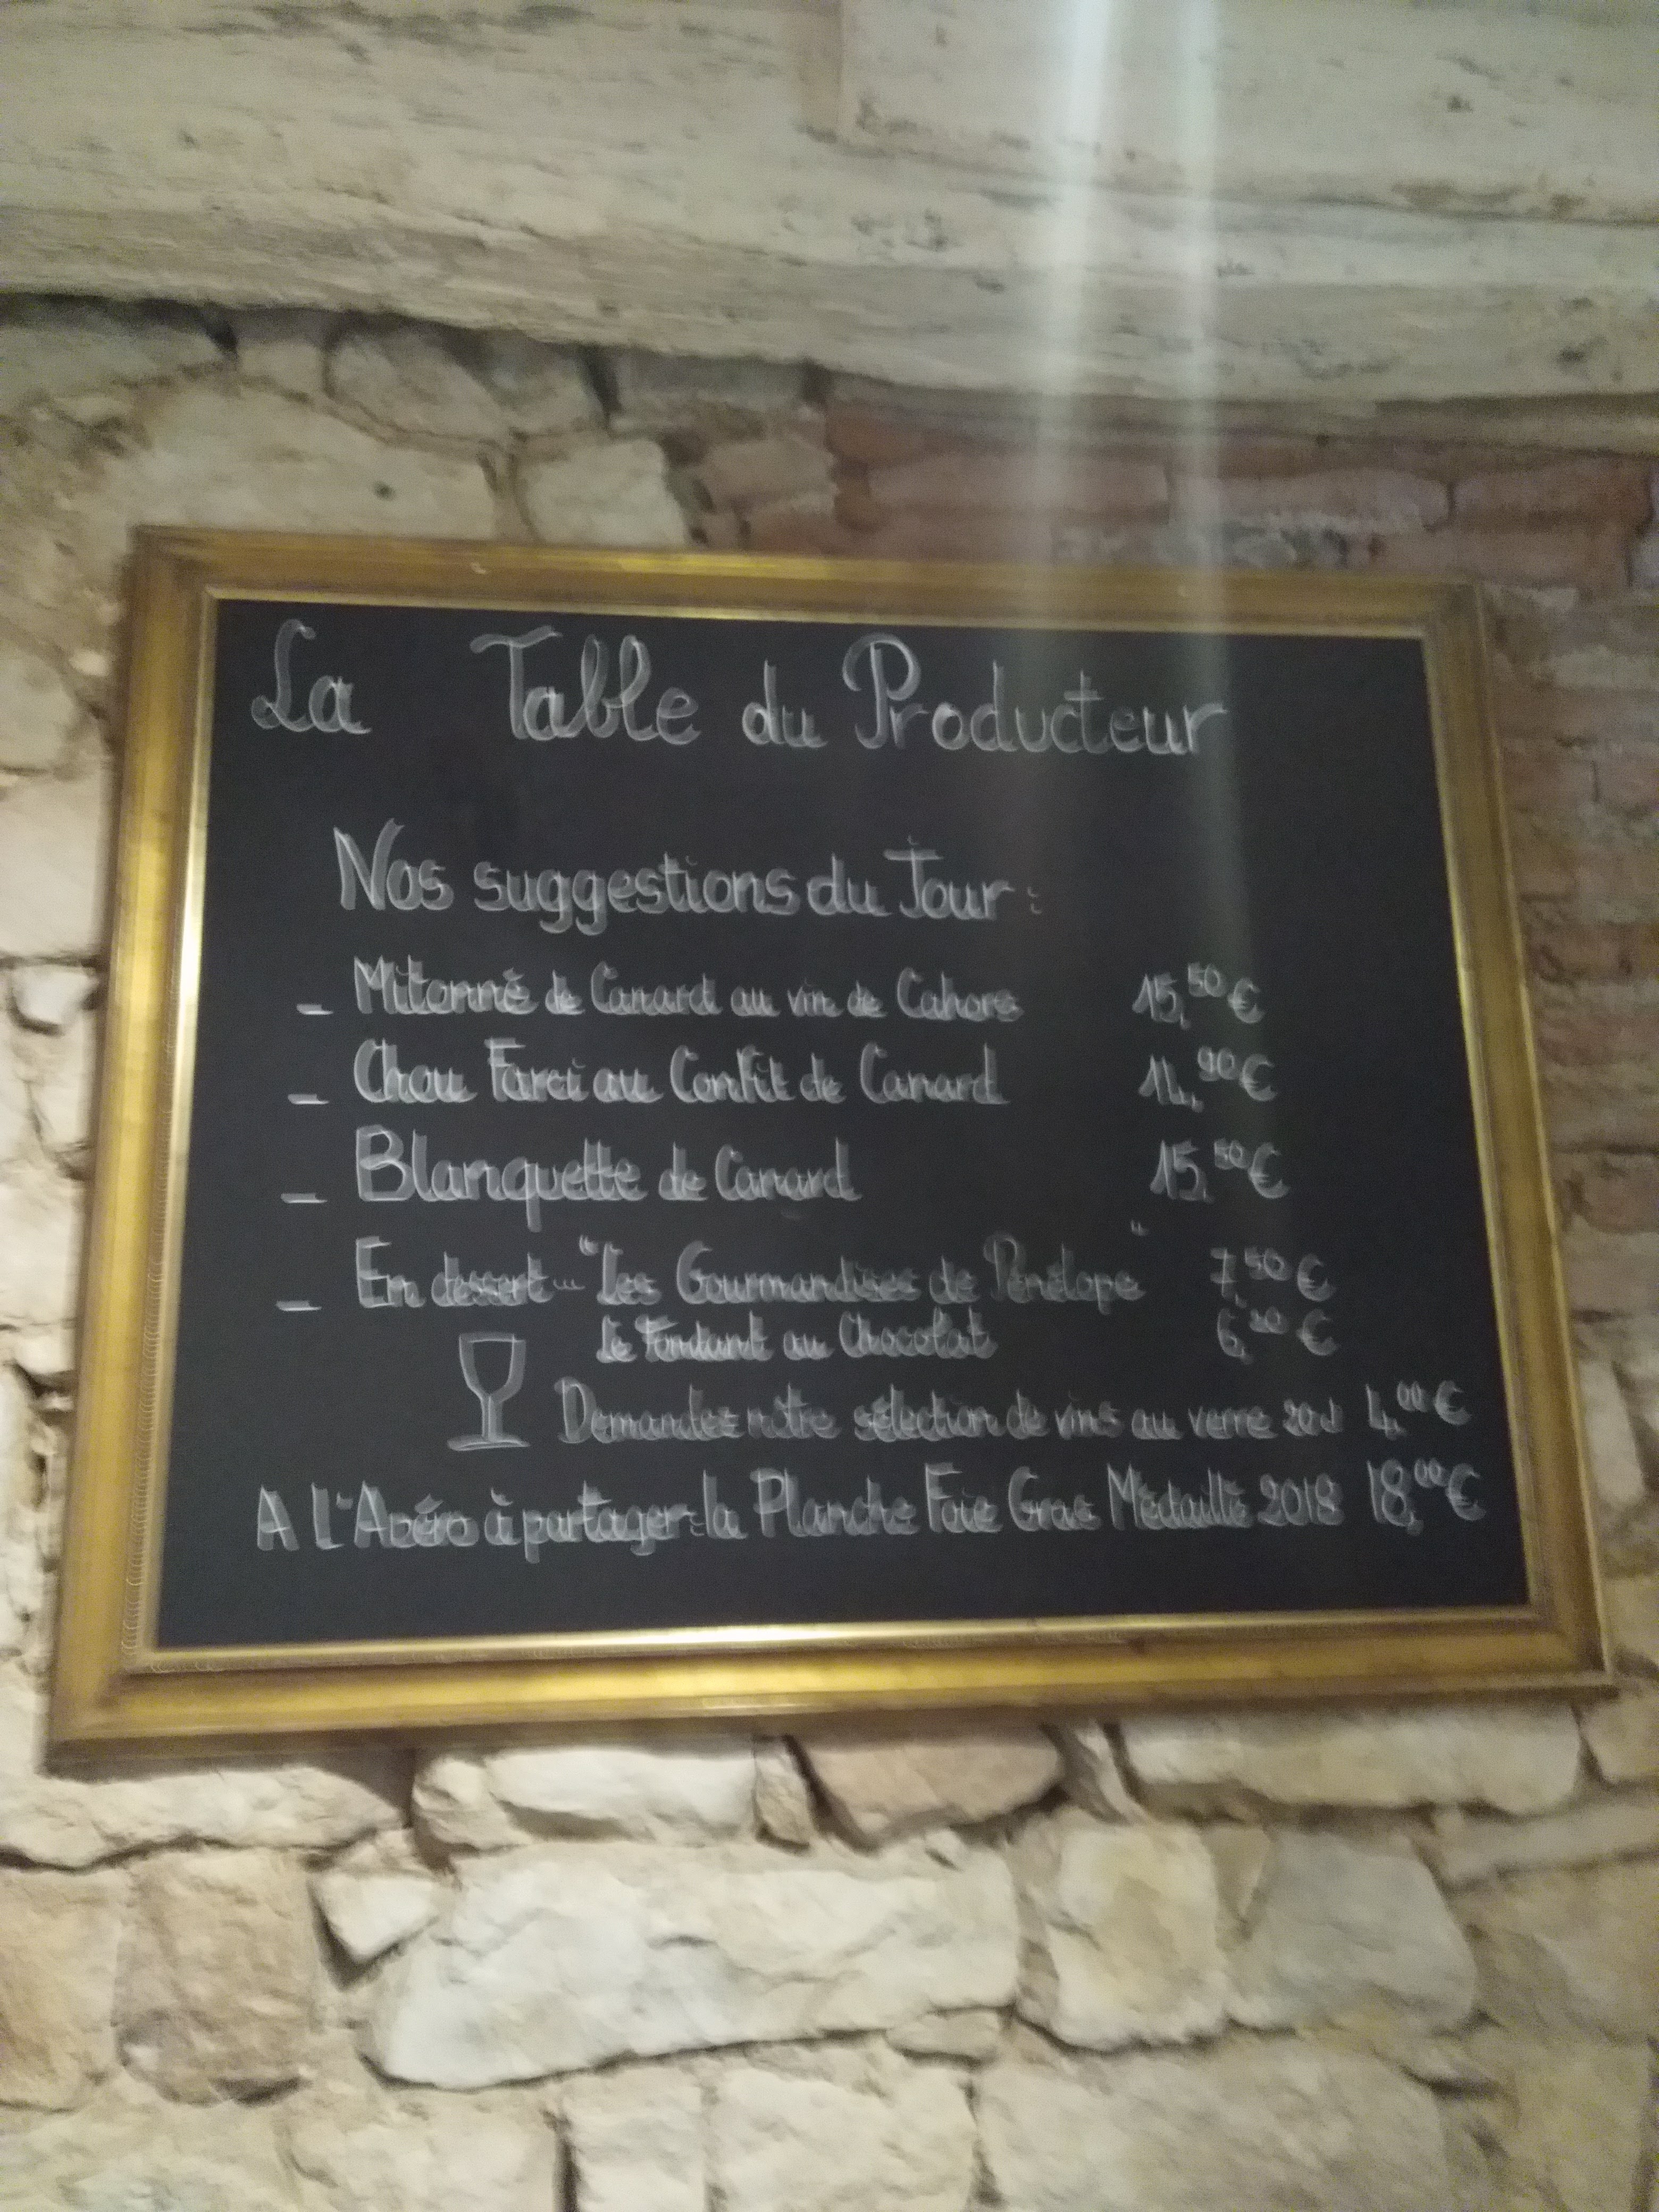 La Table du Producteur
Nos suggestions du Jour :
_ Mitonné de Canard au vin de Cahors 15,50 €
_ Chou Farci au Confit de Canard 14,90 €
_ Blanquette de Canard 15,50 €
_ En dessert... "Les Gourmandises de Pénélope" 7,50 €
Le Fondant au Chocolat 6,20 €
Demandez nôtre sélection de vins au verre 20cl 4,00 €
A l'Apéro à partager : la Planche Foie Gras Médaillé 2018 18,00 €